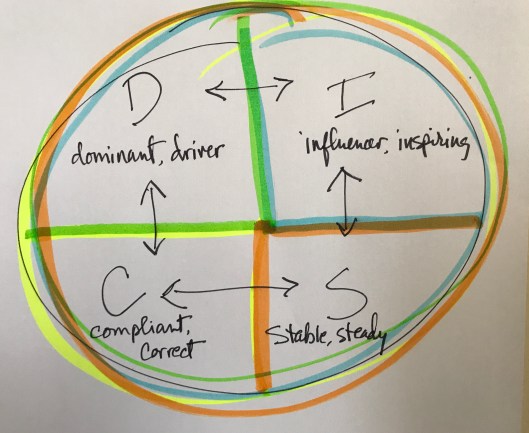 D
I
dominant, driver
influencer, inspiring
C
S
compliant,
correct
Stable, steady